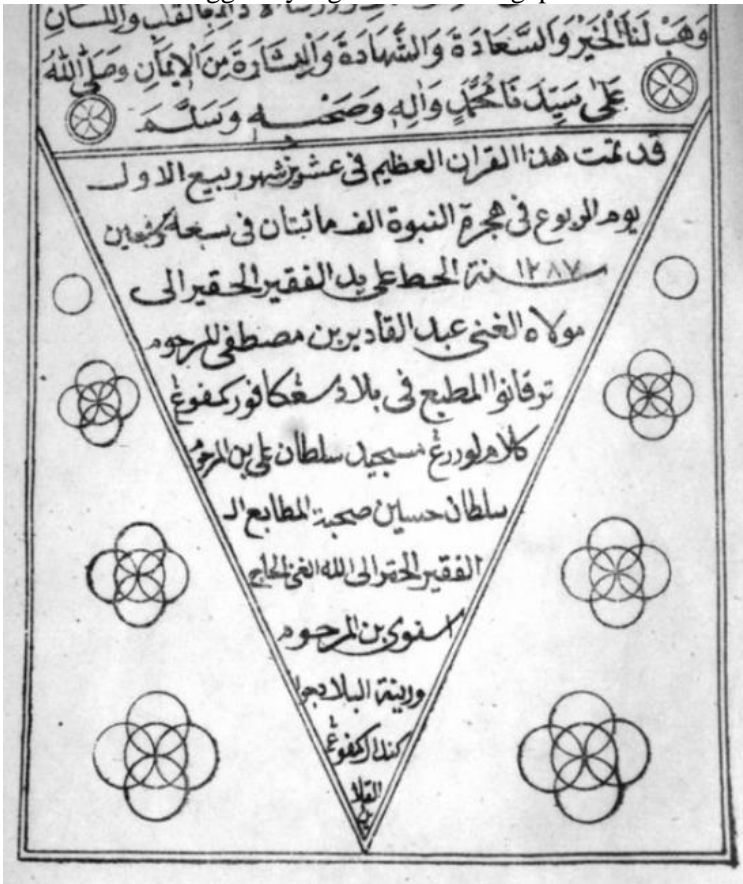 بالقلب واللسان
وَهَبْ لَنَا الْخَيْرَ وَالسَّعَادَةَ وَالشَّهَادَةَ وَالْبِشَارَةَ مِنَ الْإِيمَانِ وَصَلَّى اللهُ
عَلَى سَيِّدِنَا مُحَمَّدٍ وَآلِهِ وَصَحْبِهِ وَسَلَّمَ
قد تمت هذا القران العظيم فى عشرين شهر ربيع الاول
يوم الربوع فى هجرة النبوة الف مائتان فى سبعة
١٢٨٧ سنة الحط على يد الفقير الحقير الى
مولاه الغنى عبد القادير بن مصطفى المرحوم
ترقانوا المطبع فى بلاد سڠكافور كمفوڠ
كلام لورڠ مسجيد سلطان على بن المرحوم
سلطان حسين صحبة المطابع الـ
الفقير الحقر الى الله الغنى الحاج
بن المرحوم
البلاد جوا
كندال كمفوڠ